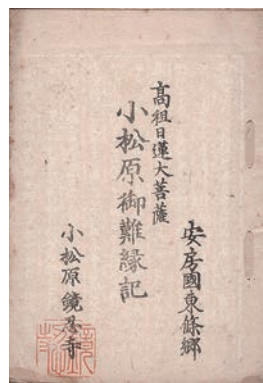 安房國東條鄉
高祖日蓮大菩薩
小松原御難緣記
小松原鏡忍寺